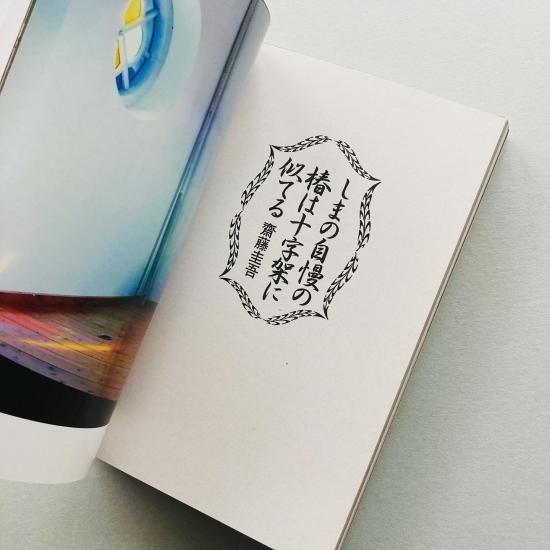 しまの自慢の
椿は十字架に
似てる
齋藤圭吾